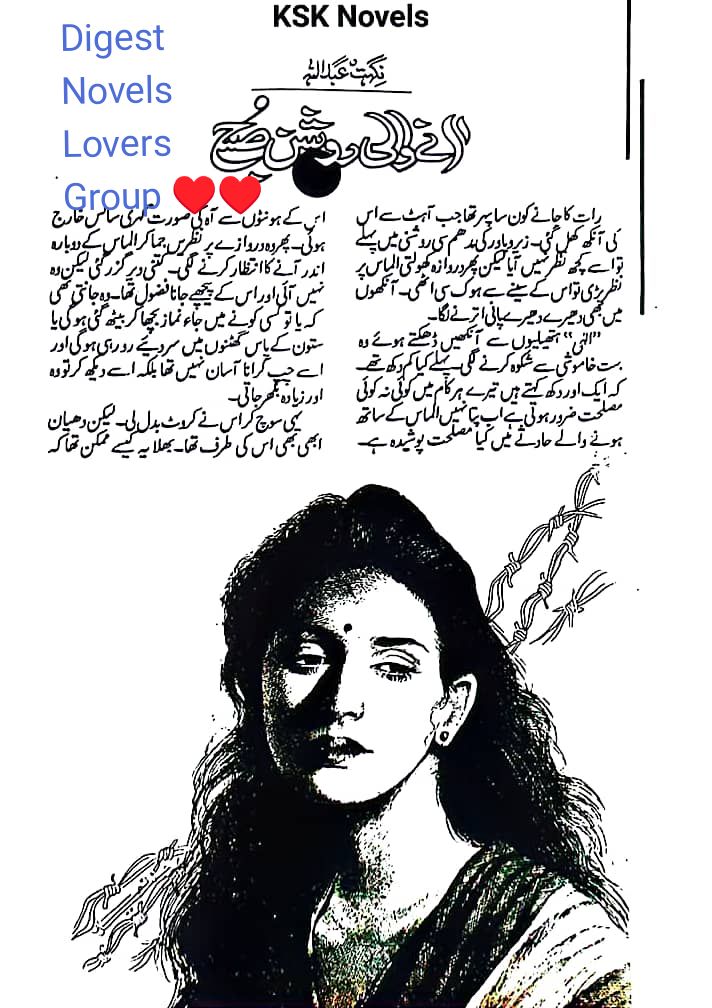 KSK Novels
Digest
Novels
Lovers
Group ❤️❤️
نگہت عبداللہ
آنے والی روشن صبح
رات کا جانے کون سا پہر تھا جب آہٹ سے اس
کی آنکھ کھل گئی۔ زیرو پاور کی مدھم سی روشنی میں پہلے
تو اسے کچھ نظر نہیں آیا لیکن پھر دروازہ کھولتی الماس پر
نظر پڑی تو اس کے سینے سے ہوک سی اٹھی۔ آنکھوں
میں بھی دھیرے دھیرے پانی اترنے لگا۔
"الٰہی" ہتھیلیوں سے آنکھیں ڈھکتے ہوئے وہ
بہت خاموشی سے شکوہ کرنے لگی۔ پہلے کیا کم دکھ تھے۔
کہ ایک اور دکھ کہتے ہیں تیرے ہر کام میں کوئی نہ کوئی
مصلحت ضرور ہوتی ہے اب پتا نہیں الماس کے ساتھ
ہونے والے حادثے میں کیا مصلحت پوشیدہ ہے۔
اس کے ہونٹوں سے آہ کی صورت گہری سانس خارج
ہوئی۔ پھر وہ دروازے پر نظریں جما کر الماس کے دوبارہ
اندر آنے کا انتظار کرنے لگی۔ کتنی دیر گزر گئی لیکن وہ
نہیں آئی اور اس کے پیچھے جانا فضول تھا۔ وہ جانتی تھی
کہ یا تو کسی کونے میں جاء نماز بچھا کر بیٹھ گئی ہوگی یا
ستون کے پاس گھٹنوں میں سر دیے رو رہی ہوگی اور
اسے چپ کرانا آسان نہیں تھا بلکہ اسے دیکھ کر تو وہ
اور زیادہ بکھر جاتی۔
یہی سوچ کر اس نے کروٹ بدل لی۔ لیکن دھیان
ابھی بھی اس کی طرف تھا۔ بھلا یہ کیسے ممکن تھا کہ